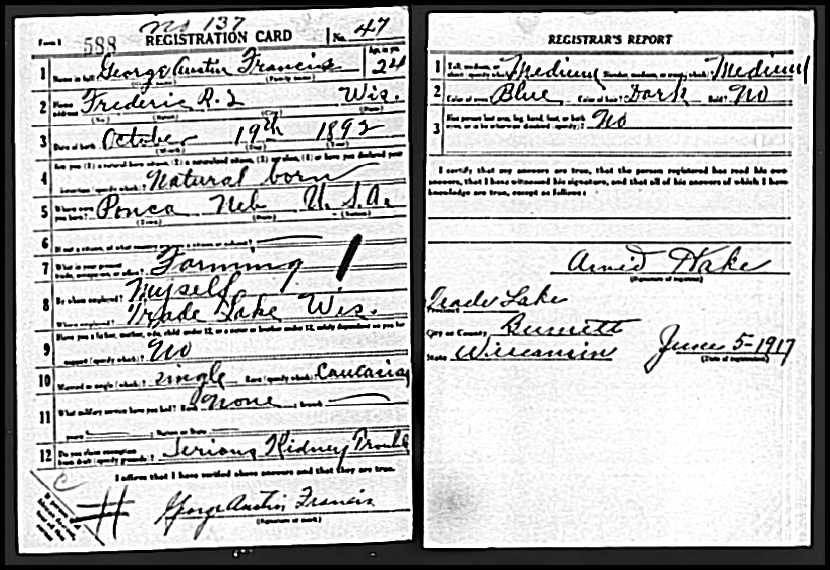 No 137
Form 1 588 REGISTRATION CARD No. 47
1 Name in full George Austin Francis Age, in yrs. 24
(Given name) (Family name)
2 Home address Frederic R. 2 Wis.
(No.) (Street) (City) (State)
3 Date of birth October 19th 1892
(Month) (Day) (Year)
4 Are you (1) a natural born citizen, (2) a naturalized citizen, (3) an alien, (4) or have you declared your
intention (specify which)? Natural born
5 Where were you born? Ponca Neb U. S. A.
(Town) (State) (Nation)
6 If not a citizen, of what country are you a citizen or subject?
7 What is your present trade, occupation, or office? Farming
8 By whom employed? Myself
Where employed? Trade Lake Wis.
9 Have you a father, mother, wife, child under 12, or a sister or brother under 12, solely dependent on you for
support (specify which)? No
10 Married or single (which)? Single Race (specify which)? Caucasian
11 What military service have you had? Rank None ; branch
years ; Nation or State
12 Do you claim exemption from draft (specify grounds)? Serious Kidney Trouble
I affirm that I have verified above answers and that they are true.
George Austin Francis
(Signature or mark)
C
REGISTRAR'S REPORT
1 Tall, medium, or short (specify which)? Medium Slender, medium, or stout (which)? Medium
2 Color of eyes? Blue Color of hair? Dark Bald? No
3 Has person lost arm, leg, hand, foot, or both
eyes, or is he otherwise disabled (specify)? No
I certify that my answers are true, that the person registered has read his own
answers, that I have witnessed his signature, and that all of his answers of which I have
knowledge are true, except as follows:
Arvid Hake
(Signature of registrar)
Precinct Trade Lake
City or County Burnett
State Wisconsin June 5-1917
(Date of registration)